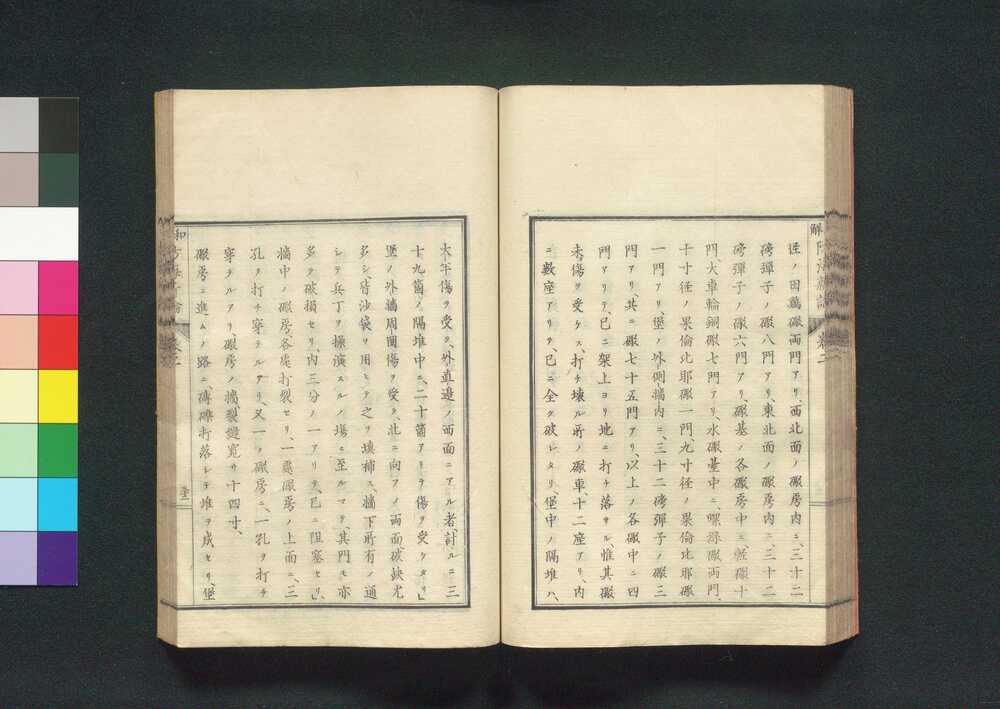 径ノ田鶏礮両門アリ、西北面ノ礮房内ニ、三十二
磅弾子ノ礮八門アリ、東北面ノ礮房内ニ、三十二
磅弾子ノ礮六門アリ、礮基ノ各礮房中ニ、礮十
門、大車輪銅礮七門アリ、水礮臺中ニ、螺絲礮両門、
十寸径ノ果倫比耶礮一門九寸径ノ果倫比耶礮
一門アリ、堡ノ外側墻内ニ、三十二磅弾子ノ礮三
門アリ、其ニ礮七十五門アリ、以上ノ各礮中ニ四
門アリテ、已ニ架上ヨリ地ニ打チ落サル惟其礮
未傷ヲ受ケス、打チ壊ル所ノ礮車、十二座アリ、内
ニ数座アリテ、已ニ全ク破レタリ、堡中ノ隔堆ハ、
大半傷ヲ受ク、外直邉ノ西面ニアル者、計ルニ三
十九箇ノ隔堆中ニ、二十箇アリテ傷ヲ受ケタリ、
堡ノ外墻周圍傷ヲ受ク、北ニ向フノ両面破缺尤
多シ、皆沙袋ヲ用ヒテ之ヲ填補ス、墻下所有ノ通
シテ兵丁ヲ操演スルノ場ニ至ルマテ、其門モ亦
多ク破損セリ、内三分ノ一アリテ、已ニ阻塞セリ、
墻中ノ礮房各處打裂セリ、一處礮房ノ上面ニ、三
孔ヲ打チ穿テルアリ、又一ノ礮房ニ、一孔ヲ打チ
穿テルアリ、礮房ノ墻、裂縫寛サ十四寸、
礮房ニ進ムノ路ニ、磚礫打落シテ堆ヲ成セリ、堡
巻二